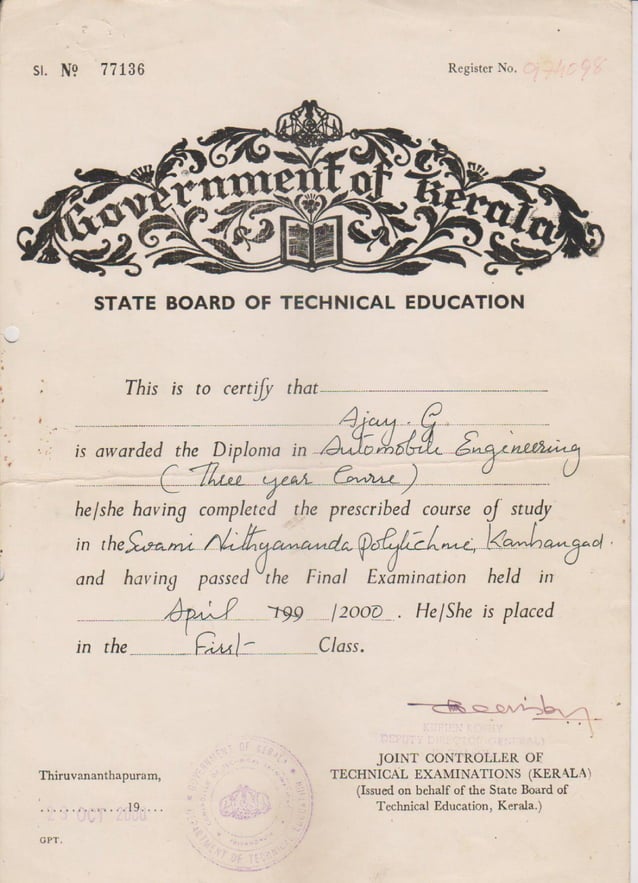 Sl. Nº 77136
Register No. 974098
Government of Kerala
STATE BOARD OF TECHNICAL EDUCATION
This is to certify that
Ajay. G
is awarded the Diploma in Automobile Engineering
(Three year Course)
he/she having completed the prescribed course of study
in the Swami Nithyananda Polytechnic, Kanhangad.
and having passed the Final Examination held in
April 199 /2000. He/She is placed
in the First Class.
KURIEN KOSHY
DEPUTY DIRECTOR (GENERAL)
JOINT CONTROLLER OF
TECHNICAL EXAMINATIONS (KERALA)
(Issued on behalf of the State Board of
Technical Education, Kerala.)
Thiruvananthapuram,
OCT 2000 19
GPT.
GOVERNMENT OF KERALA
DEPARTMENT OF TECHNICAL